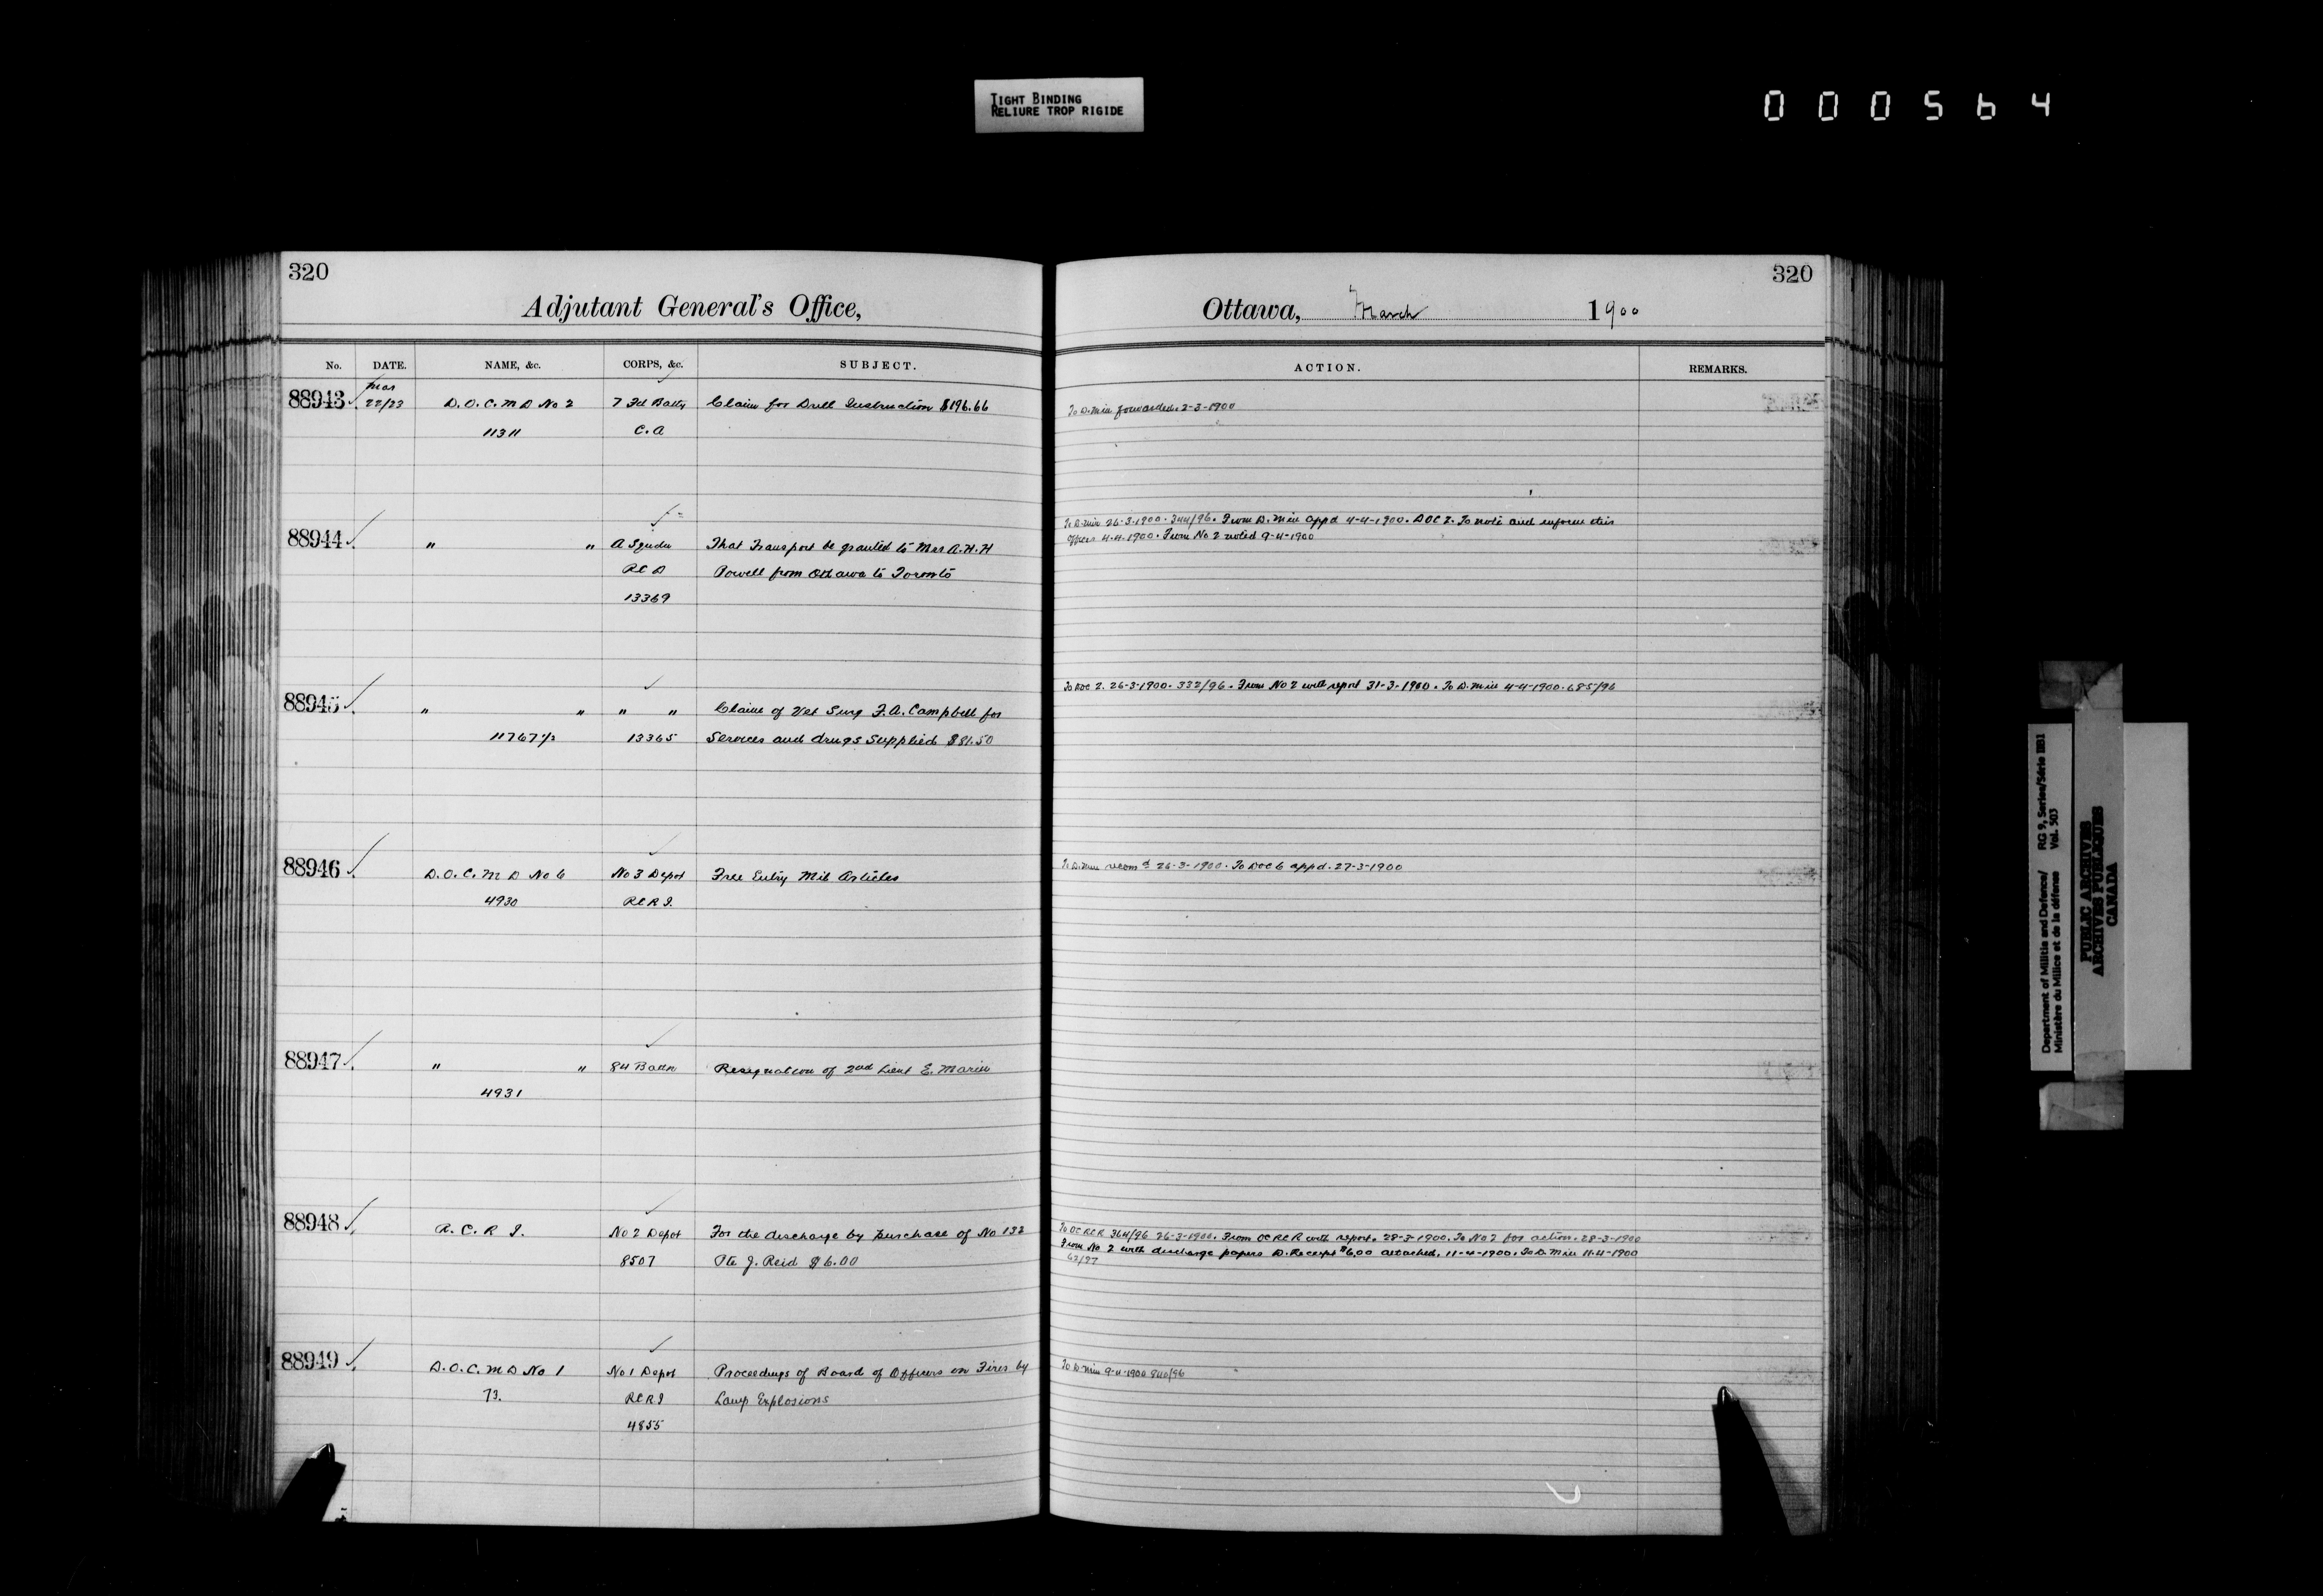 TIGHT BINDING
RELIURE TROP RIGIDE
000564
320
Adjutant General's Office,
No. DATE. NAME, &c. CORPS, &c. SUBJECT.
88943 Mar 22/23 D.O.C. M D No 2 7 Fd Batty Claim for Drill Instruction $196.66
11311 C.A
88944 " " A Sqdn That Transport be granted to Mrs A.H.H
RCD Powell from Ottawa to Toronto
13369
88945 " " " " Claim of Vet Surg F.A. Campbell for
11767 1/2 13365 Services and drugs Supplied $81.50
88946 D.O.C. M D No 6 No 3 Depot Free Entry Mil Articles
4930 RCRI
88947 " " 84 Battn Resignation of 2nd Lieut E. Marin
4931
88948 R.C.R.I. No 2 Depot For the discharge by purchase of No 132
8507 Pte J. Reid $6.00
88949 D.O.C. M D No 1 No 1 Depot Proceedings of Board of Officers on Fires by
73. RCRI Lamp Explosions
4855
320
Ottawa, March 1900
ACTION. REMARKS.
To D. Min forwarded. 2-3-1900
To D. Min 26-3-1900. 344/96. From D. Min appd 4-4-1900. DOC 2. To note and inform this
Officer 4-4-1900. From No 2 noted 9-4-1900
To DOC 2. 26-3-1900. 332/96. From No 2 with report 31-3-1900. To D. Min 4-4-1900. 685/96
To D. Min recomd 26-3-1900. To DOC 6 appd. 27-3-1900
To OC RCR 364/96 26-3-1900. From OC RCR with report. 28-3-1900. To No 2 for action. 28-3-1900
From No 2 with discharge papers D. Receipt $6.00 attached. 11-4-1900. To D. Min 11-4-1900
62/97
To D. Min 9-4-1900 840/96
Department of Militia and Defence/ RG 9, Series/Série IIB1
Ministère du Milice et de la défense Vol. 503
PUBLIC ARCHIVES
ARCHIVES PUBLIQUES
CANADA